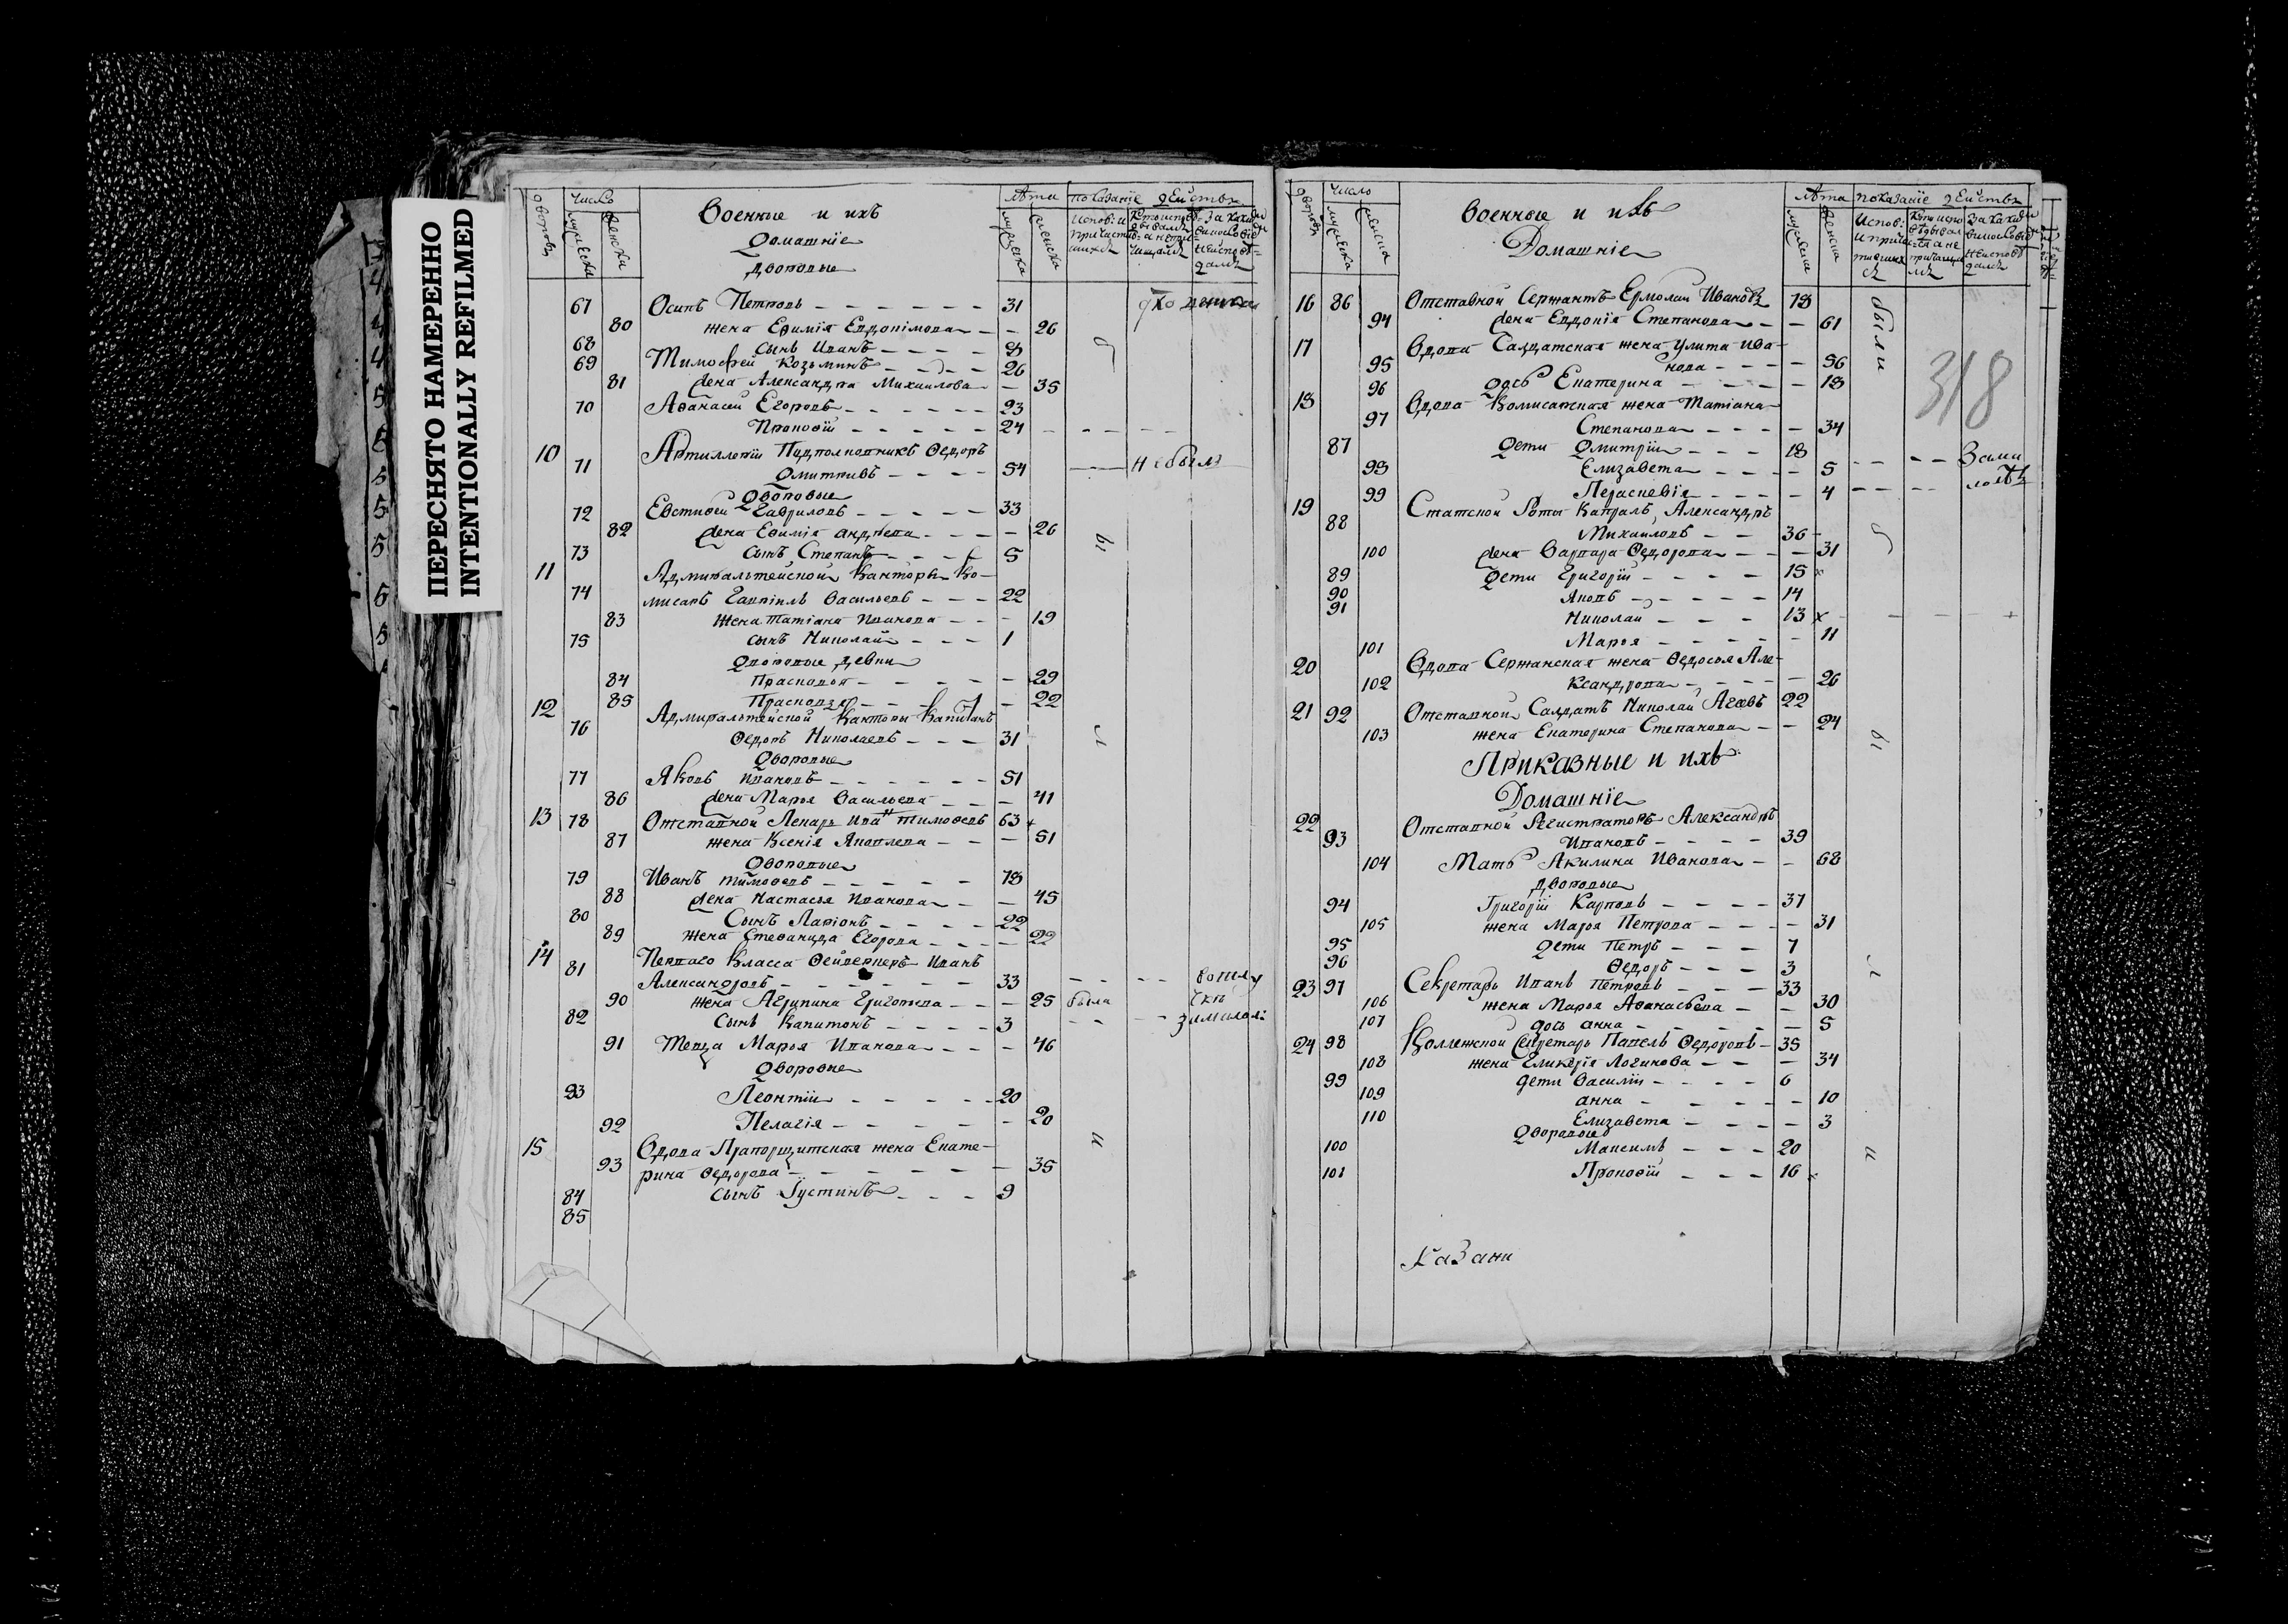 ПЕРЕСНЯТО НАМЕРЕННО
INTENTIONALLY REFILMED
Число Лѣта показанїе действъ
дворовъ мужеска женска Военные и ихъ мужеска женска
Домашнїе
дворовые
67 Осипъ Петровъ 31
80 жена Евфимїя 26
68 сынъ Иванъ 8
69 Тимофей Козьминъ 26
81 жена Александра Михаилова 35
70 Афанасей Егоровъ 23
Прокофїй 24
10 Артиллерїи Подполковникъ Ѳедоръ
71 Дмитривъ 54 не былъ
Дворовые
72 Евстифей Гавриловъ 33
82 жена Евфимїя андреева 26
73 сынъ Степанъ 5
11 Адмиралтейской Канторы Ко-
74 мисаръ Гавріилъ Васильевъ 22
83 жена татїана Иванова 19
75 сынъ Николай 1
Дворовые девки
84 Прасковья 29
85 22
12 Адмиралтейской Канторы Капитанъ
76 Ѳедоръ Николаевъ 31
Дворовые
77 Яковъ Ивановъ 51
86 жена Марья Васильева 41
13 78 Отставной Лекарь Ива тимофевъ 63
87 жена Ксенїя Яковлева 51
Дворовые
79 Иванъ тимофевъ 78
88 жена Настасья Иванова 45
80 Сынъ Ларїонъ 22
89 жена Стефанида Егорова 22
14 Перваго Класса Фейверкеръ Иванъ
81 Александровъ 33
90 жена Агрипина Григорьева 25 была
82 Сынъ Капитонъ 3
91 Теща Марья Иванова 46
Дворовые
83 Леонтїй 20
92 Пелагїя 20
15 Вдова Прапорщитская жена Екате-
93 рина Ѳедорова 35
84 сынъ Іустинъ 9
85
Число Лѣта показанїе действъ
дворовъ мужеска женска Военные и ихъ мужеска женска
Домашнїе
16 86 Отставной Сержантъ Ермолай Ивановъ 78 были
94 жена Евдокїя Степанова 61
17 Вдова Салдатская жена улита ива-
95 нова 56
96 дочь Екатерина 18
318
18 Вдова Комисарская жена Татїана
97 Степанова 34
87 дети Дмитрїй 18
98 Елизавета 5 За мало
99 Параскевїя 4 лѣт
19 Статской Роты Капралъ Александръ
88 Михаиловъ 36
100 жена Варвара Ѳедорова 31
89 дети Григорїй 15
90 Яковъ 14
91 Николай 13
101 Марья 11
20 Вдова Сержанская жена Ѳедосья Але-
102 ксандрова 26
21 92 Отставной Салдатъ Николай 22
103 жена Екатерина Степанова 24
Приказные и ихъ
Домашнїе
22 Отставной Регистраторъ Александръ
93 Ивановъ 39
104 Мать Акилина Иванова 68
дворовые
94 Григорїй Карповъ 37
105 жена Марья Петрова 31
95 дети Петръ 7
96 Ѳедоръ 3
23 97 Секретарь Иванъ Петровъ 33
106 жена Марья Афанасьева 30
107 дочь анна 5
24 98 Коллежской Секретарь Павелъ Ѳедоровъ 35
108 жена Гликерїя Логинова 34
99 дети Василїй 6
109 анна 10
110 Елизавета 3
Дворовые
100 Максимъ 20
101 Прокофїй 16
Казани